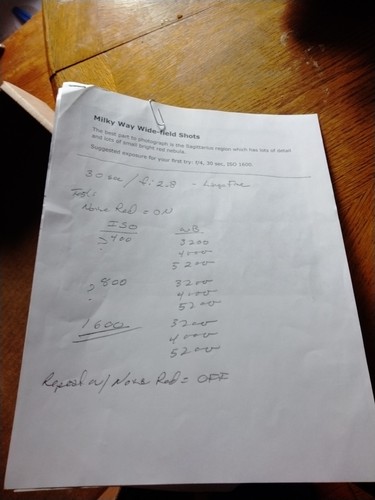 Milky Way Wide-field Shots
The best part to photograph is the Sagittarius region which has lots of detail
and lots of small bright red nebula.
Suggested exposure for your first try: f/4, 35 sec, ISO 1600.
30 sec / f: 2.8 -
Noise Red = ON
ISO WB
> 400 3200
4000
5200
> 800 3200
4000
5200
1600 3200
4000
5200
Repeat w/ Noise Red = OFF